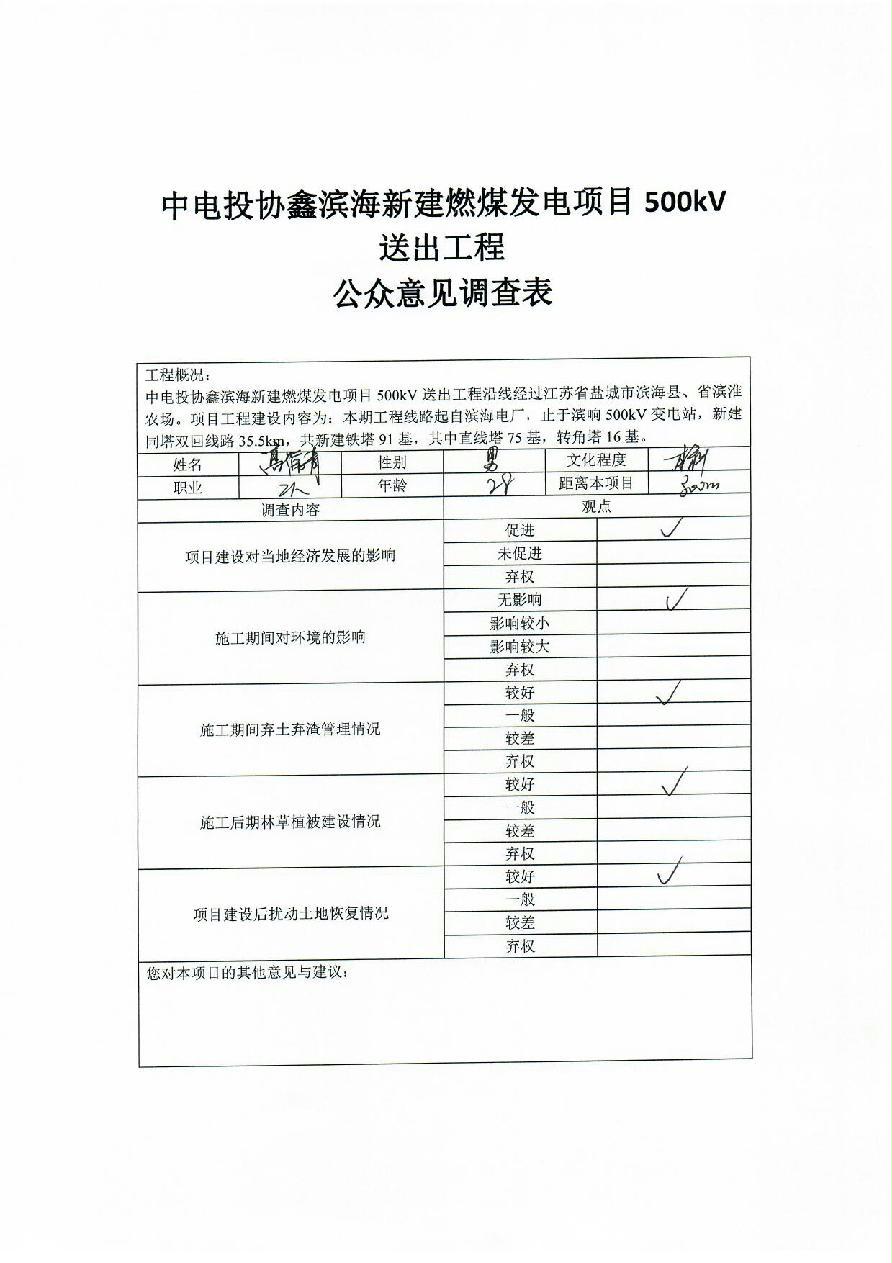 中电投协鑫滨海新建燃煤发电项目 500kV
送出工程
公众意见调查表
工程概况：
中电投协鑫滨海新建燃煤发电项目 500kV 送出工程沿线经过江苏省盐城市滨海县、省滨淮
农场。项目工程建设内容为：本期工程线路起自滨海电厂，止于滨响 500kV 变电站，新建
同塔双回线路 35.5km，共新建铁塔 91 基，其中直线塔 75 基，转角塔 16 基。
姓名 性别 男 文化程度 本科
职业 工人 年龄 28 距离本项目 300m
调查内容 观点
项目建设对当地经济发展的影响 促进 ✓
未促进
弃权
施工期间对环境的影响 无影响 ✓
影响较小
影响较大
弃权
施工期间弃土弃渣管理情况 较好 ✓
一般
较差
弃权
施工后期林草植被建设情况 较好 ✓
一般
较差
弃权
项目建设后扰动土地恢复情况 较好 ✓
一般
较差
弃权
您对本项目的其他意见与建议：